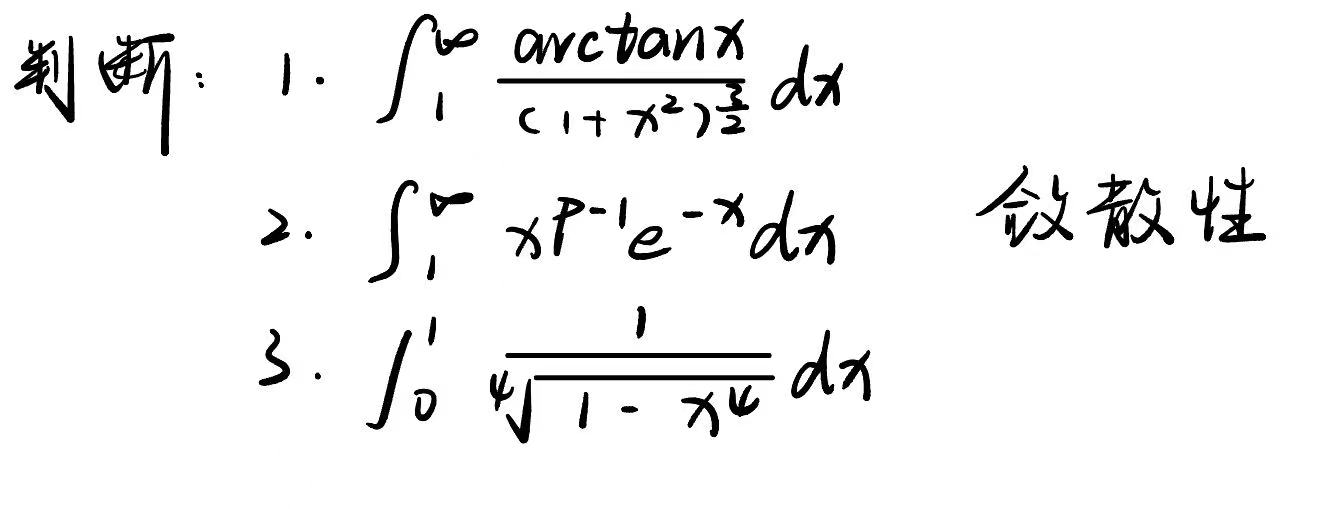 判断: 1. ∫_1^∞ \frac{arctanx}{(1+x^2)^{\frac{3}{2}}} dx
2. ∫_1^∞ x^{p-1}e^{-x}dx 敛散性
3. ∫_0^1 \frac{1}{\sqrt[4]{1-x^4}} dx